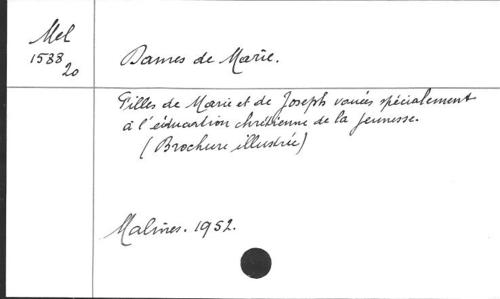 Mel
1588
20
Dames de Marie.
Filles de Marie et de Joseph vouées spécialement
à l'éducation chrétienne de la Jeunesse.
(Brochure illustrée)
Malines. 1952.